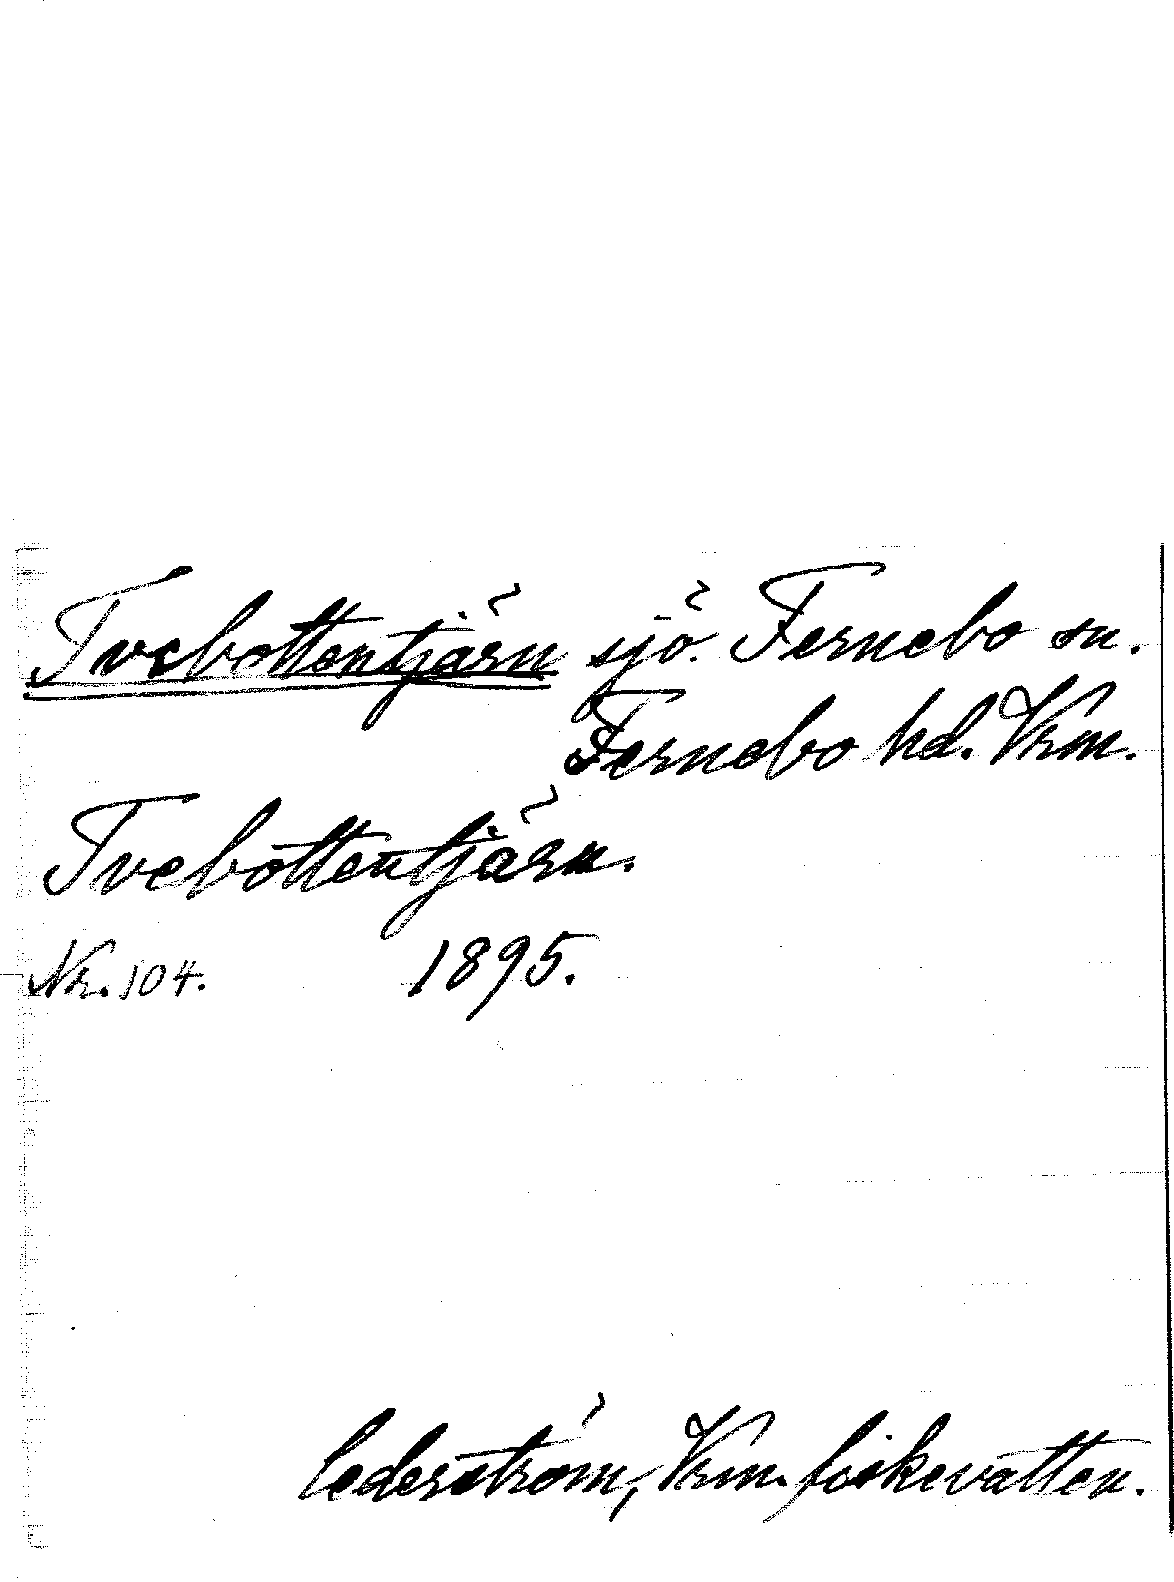 Tvebottentjärn sjö. Fernebo sn.
Fernebo hd. Vrm.
Tvebottentjärn.
Nr. 104. 1895.
Cederström, Vrm. fiskevatten.